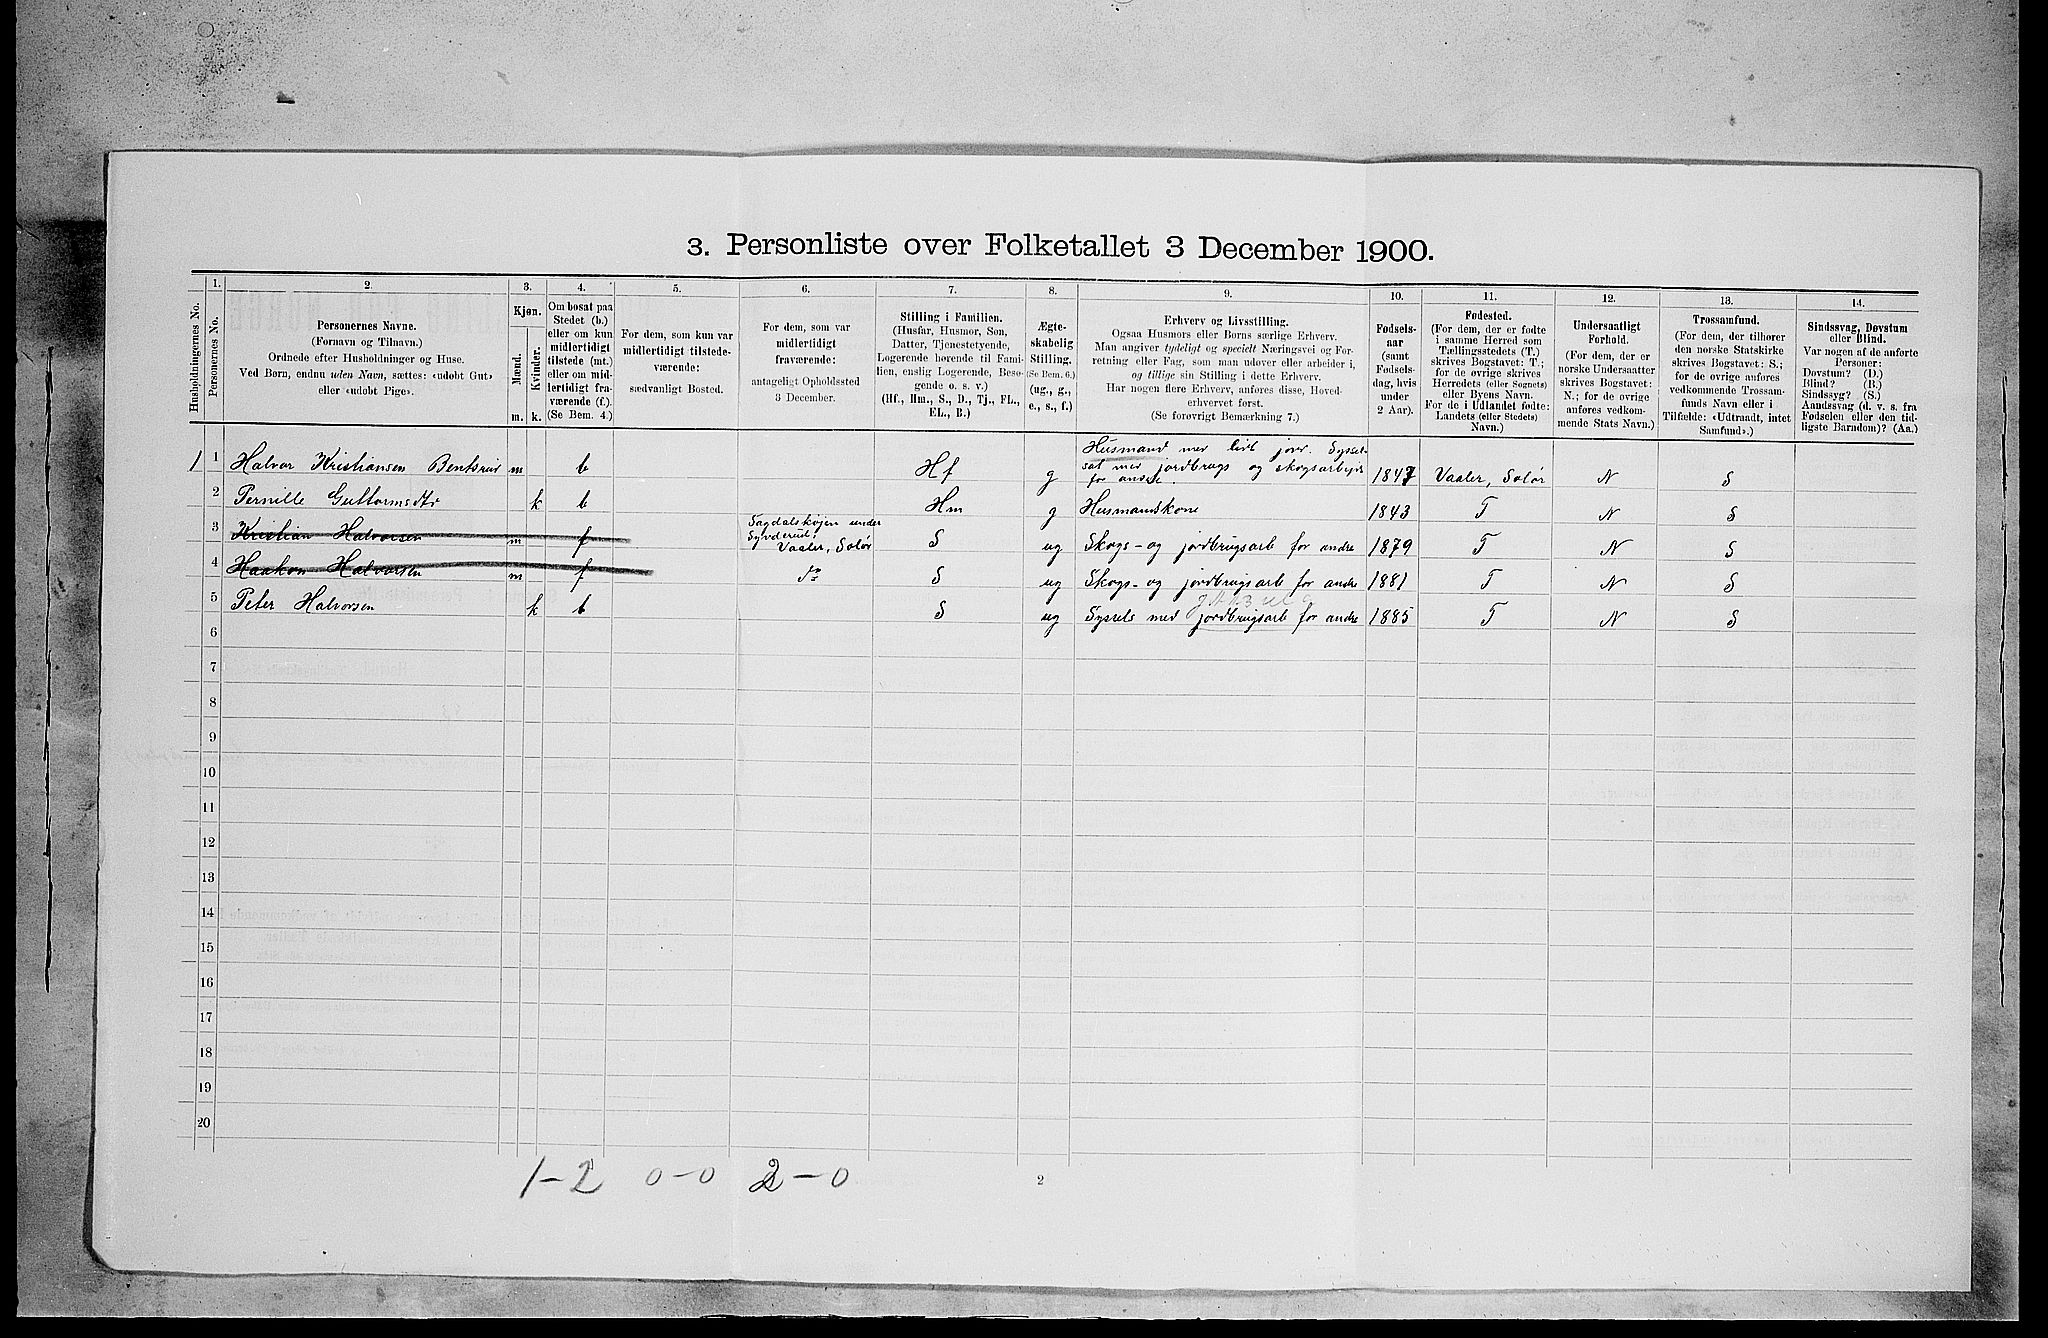 3. Personliste over Folketallet 3 December 1900.
Husholdningernes No.
1.
Personernes No.
2.
Personernes Navne.
(Fornavn og Tilnavn.)
Ordnede efter Husholdninger og Huse.
Ved Børn, endnu uden Navn, sættes: «udøbt Gut»
eller «udøbt Pige».
3.
Kjøn.
Mænd.
Kvinder.
m.
k.
4.
Om bosat paa
Stedet (b.)
eller om kun
midlertidigt
tilstede (mt.)
eller om mid-
lertidigt fra-
værende (f.)
(Se Bem. 4.)
5.
For dem, som kun var
midlertidigt tilstede-
værende:
sædvanligt Bosted.
6.
For dem, som var
midlertidigt
fraværende:
antageligt Opholdssted
3 December.
7.
Stilling i Familien.
(Husfar, Husmor, Søn,
Datter, Tjenestetyende,
Logerende hørende til Fami-
lien, enslig Logerende, Besø-
gende o. s. v.)
(Hf., Hm., S., D., Tj., FL.,
EL., B.)
8.
Ægte-
skabelig
Stilling.
(Se Bem. 6.)
(ug., g.,
e., s., f.)
9.
Erhverv og Livsstilling.
Ogsaa Husmors eller Børns særlige Erhverv.
Man angiver tydeligt og specielt Næringsvei og For-
retning eller Fag, som man udøver eller arbeider i,
og tillige sin Stilling i dette Erhverv.
Har nogen flere Erhverv, anføres disse, Hoved-
erhvervet først.
(Se forøvrigt Bemærkning 7.)
10.
Fødsels-
aar
(samt
Fødsels-
dag, hvis
under
2 Aar).
11.
Fødested.
(For dem, der er fødte
i samme Herred som
Tællingsstedets (T.)
skrives Bogstavet: T.;
for de øvrige skrives
Herredets (eller Sognets)
eller Byens Navn.
For de i Udlandet fødte:
Landets (eller Stedets)
Navn.)
12.
Undersaatligt
Forhold.
(For dem, der er
norske Undersaatter
skrives Bogstavet:
N.; for de øvrige
anføres vedkom-
mende Stats Navn.)
13.
Trossamfund.
(For dem, der tilhører
den norske Statskirke
skrives Bogstavet: S.;
for de øvrige anføres
vedkommende Trossam-
funds Navn eller i
Tilfælde: «Udtraadt, intet
Samfund».)
14.
Sindssvag, Døvstum
eller Blind.
Var nogen af de anførte
Personer:
Døvstum? (D.)
Blind? (B.)
Sindssyg? (S.)
Aandssvag (d. v. s. fra
Fødselen eller den tid-
ligste Barndom)? (Aa.)
1 1 Halvor Kristiansen m b Hf g Husmand med lidt jord. Syssel-
sat med jordbrugs og skogsarbejde
for andre. 1847 Vaaler, Solør N S
2 Pernille Guttormsdtr k b Hm g Husmandskone 1843 T N S
3 Kristian Halvorsen m f Sagdalskojen under
Vaaler, Solør S ug Skogs- og jordbrugsarb for andre 1879 T N S
4 Haakon Halvorsen m f do S ug Skogs- og jordbrugsarb for andre 1881 T N S
5 Peter Halvorsen k b S ug Syssels med jordbrugsarb for andre 1885 T N S
6
7
8
9
10
11
12
13
14
15
16
17
18
19
20
1-2 0-0 2-0
2